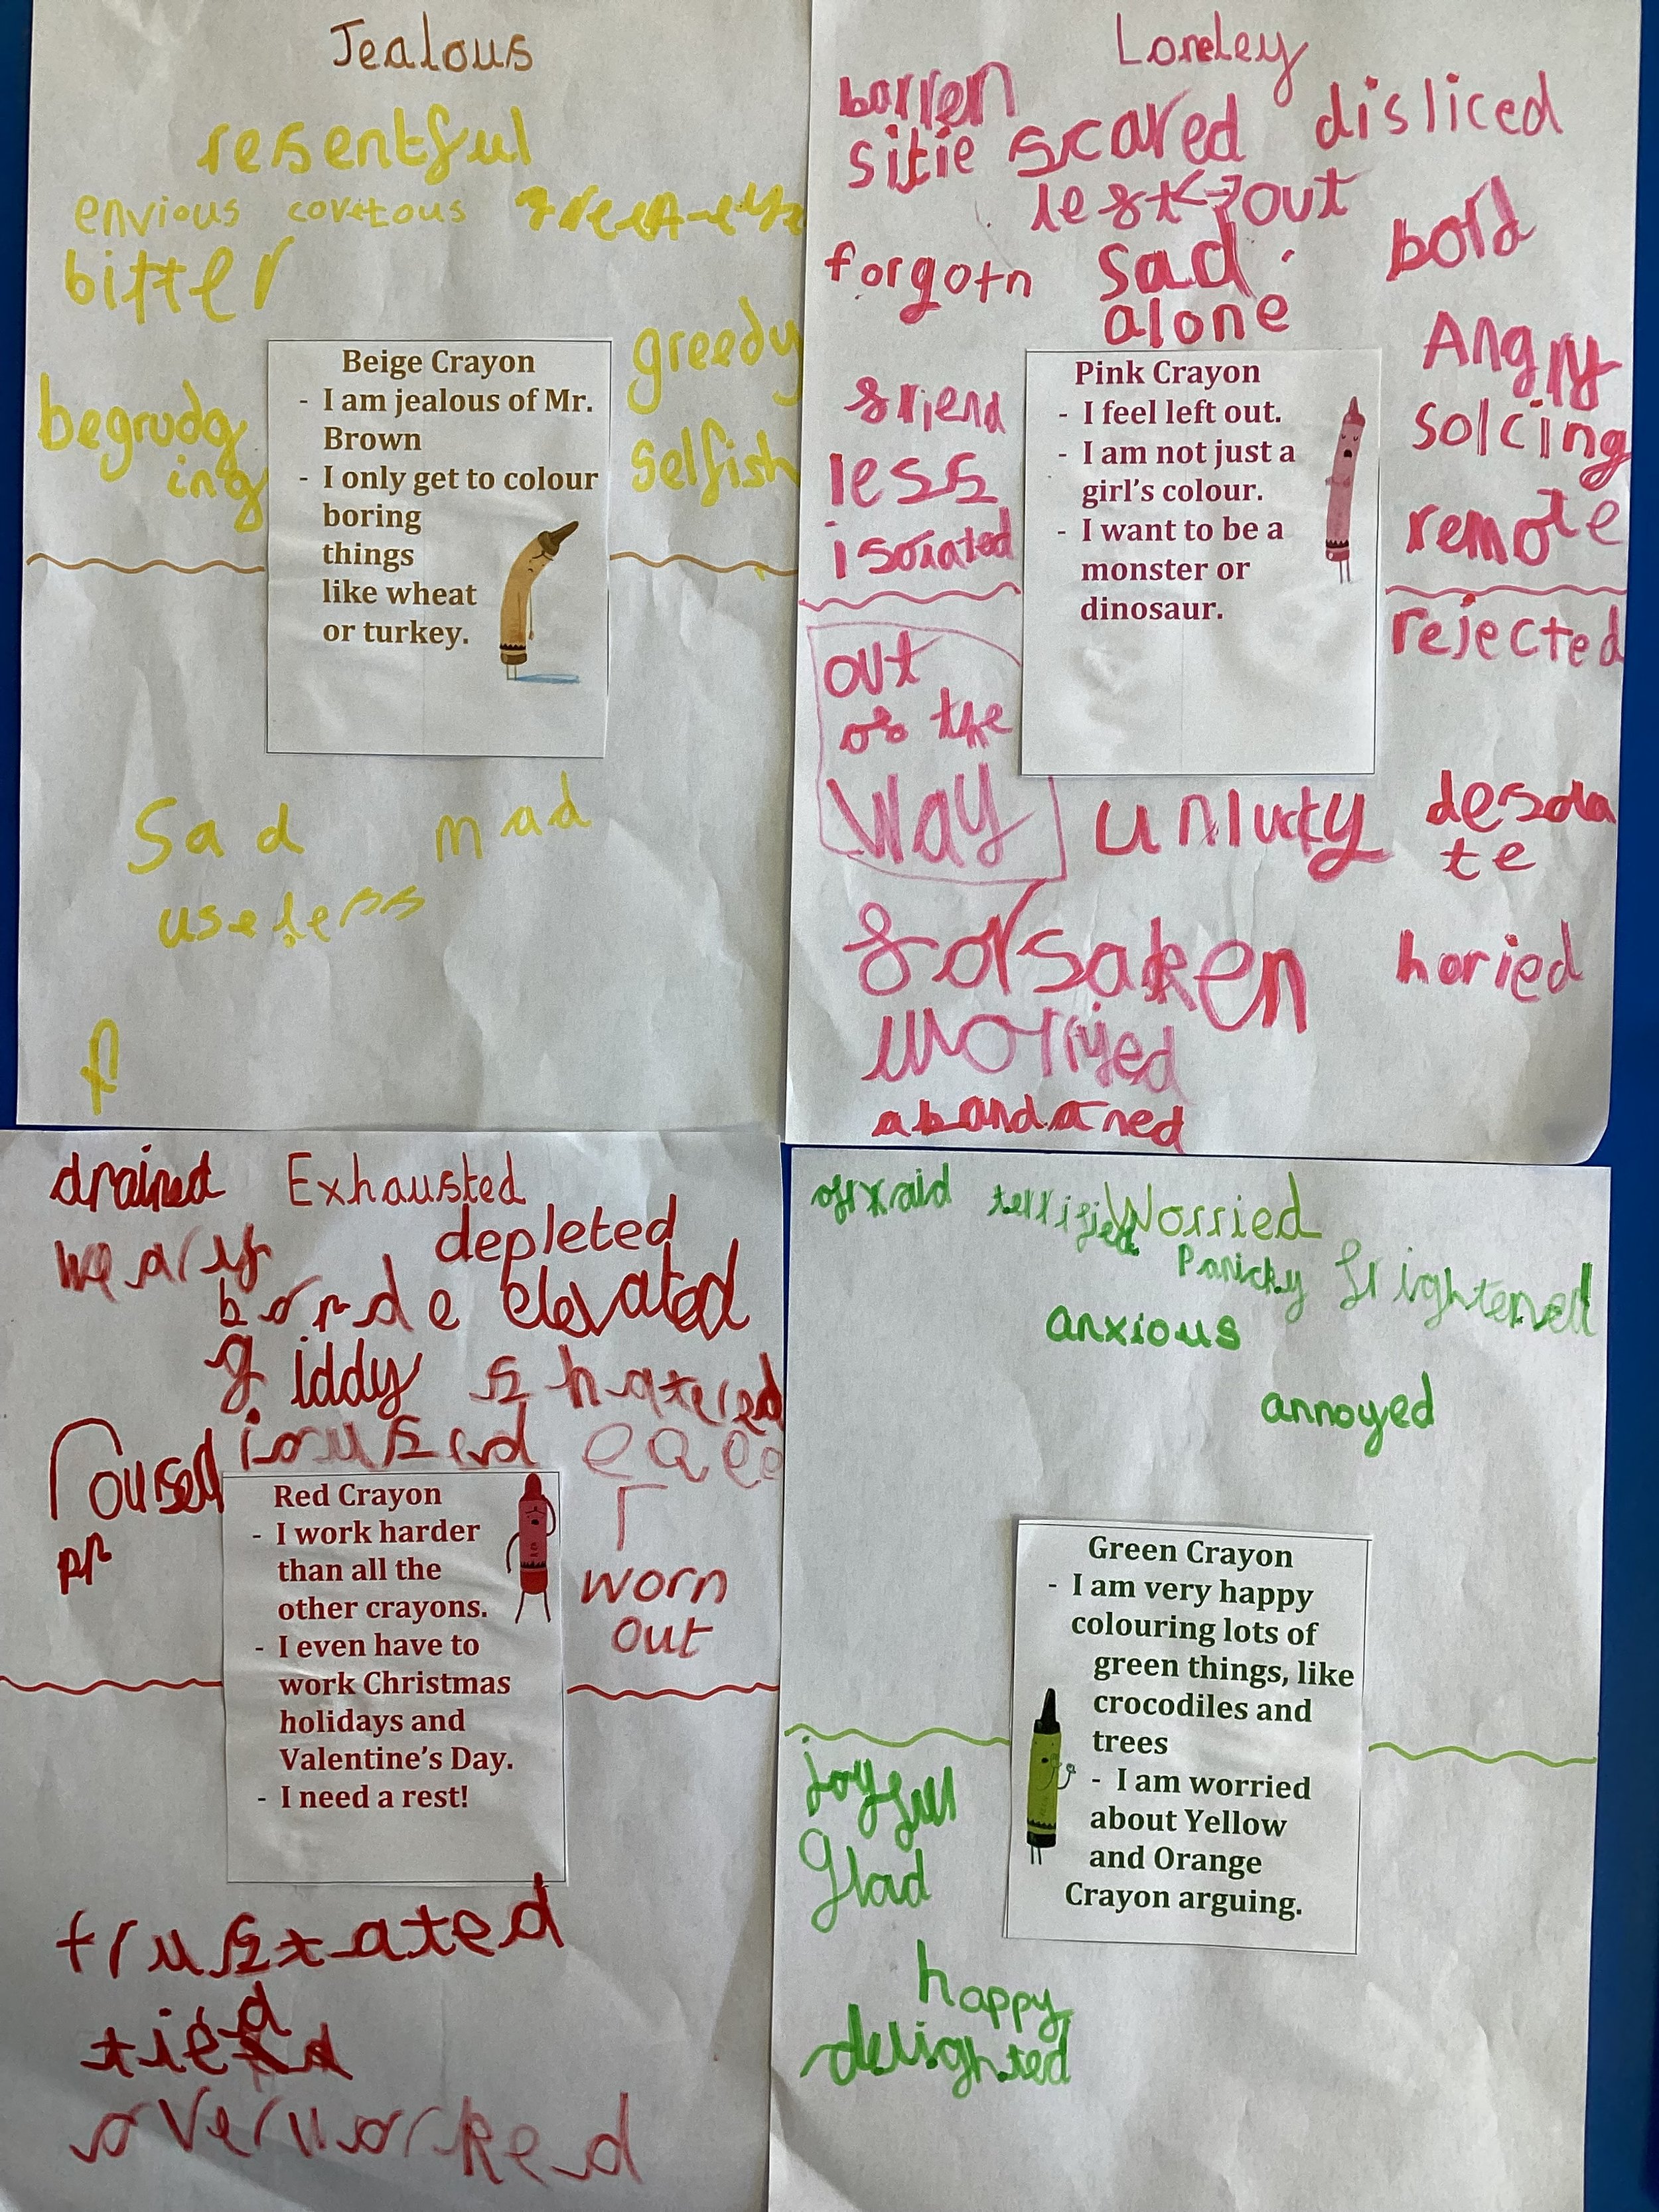 Jealous
resentful
envious covetous green-eye
bitter
greedy
begrudg
ing
selfish
Beige Crayon
- I am jealous of Mr.
Brown
- I only get to colour
boring
things
like wheat
or turkey.
sad mad
useless
Loneley
barren
sitie scared disliced
left out
forgotn sad bord
alone
Angry
friend
less
isolated
solcing
remote
rejected
Pink Crayon
- I feel left out.
- I am not just a
girl's colour.
- I want to be a
monster or
dinosaur.
out
of the
way
unlucky
desola
te
forsaken
horied
worriyed
abandaned
drained Exhausted
weary depleted
borde elevated
giddy shatered
roused
worn
out
Red Crayon
- I work harder
than all the
other crayons.
- I even have to
work Christmas
holidays and
Valentine's Day.
- I need a rest!
frustrated
tied
overworked
afraid terrified Worried
Panicky frightened
anxious
annoyed
Green Crayon
- I am very happy
colouring lots of
green things, like
crocodiles and
trees
- I am worried
about Yellow
and Orange
Crayon arguing.
joyfull
Glad
happy
delighted